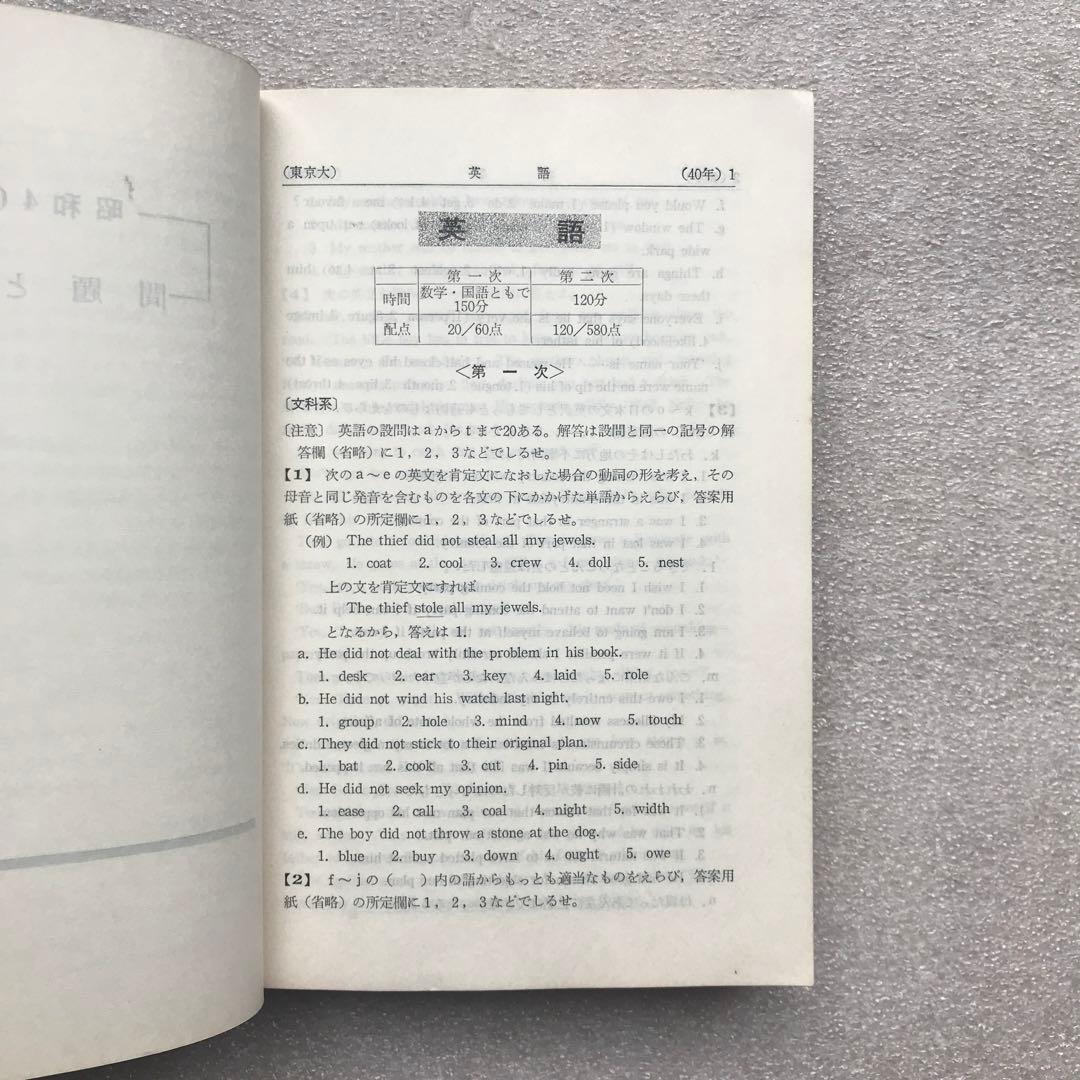 (東京大) 英語 (40年) 1
英語
第一次 第二次
時間 数学・国語ともで150分 120分
配点 20/60点 120/580点
<第一次>
〔文科系〕
〔注意〕 英語の設問はaからtまで20ある。解答は設問と同一の記号の解
答欄(省略)に1,2,3などでしるせ。
【1】 次のa~eの英文を肯定文になおした場合の動詞の形を考え,その
母音と同じ発音を含むものを各文の下にかかげた単語からえらび,答案用
紙(省略)の所定欄に1,2,3などでしるせ。
(例) The thief did not steal all my jewels.
1. coat 2. cool 3. crew 4. doll 5. nest
上の文を肯定文にすれば
The thief stole all my jewels.
となるから,答えは1.
a. He did not deal with the problem in his book.
1. desk 2. ear 3. key 4. laid 5. role
b. He did not wind his watch last night.
1. group 2. hole 3. mind 4. now 5. touch
c. They did not stick to their original plan.
1. bat 2. cook 3. cut 4. pin 5. side
d. He did not seek my opinion.
1. ease 2. call 3. coal 4. night 5. width
e. The boy did not throw a stone at the dog.
1. blue 2. buy 3. down 4. ought 5. owe
【2】 f~jの( )内の語からもっとも適当なものをえらび,答案用
紙(省略)の所定欄に1,2,3などでしるせ。